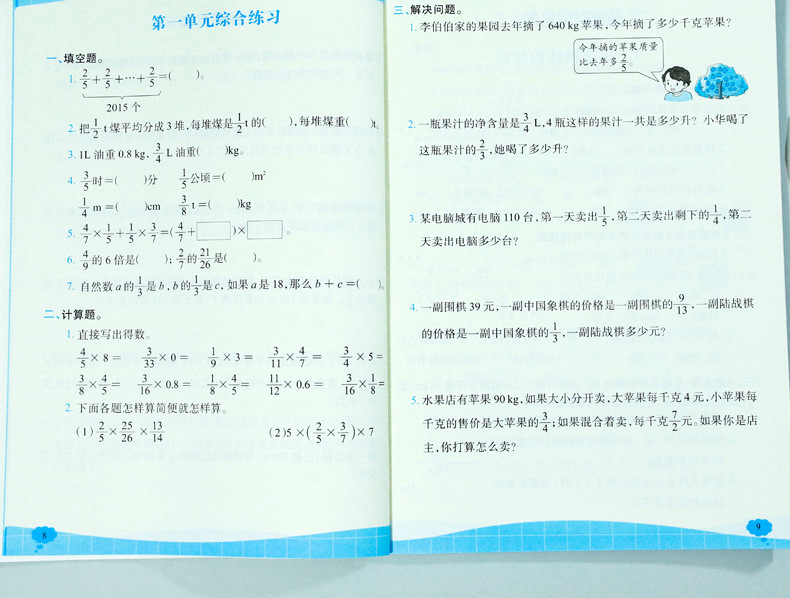 第一单元综合练习
一、填空题。
1. 2/5+2/5+…+2/5=(　　)。
2015 个
2. 把1/2 t煤平均分成3堆,每堆煤是1/2 t的(　　),每堆煤重(　　)t。
3. 1L油重0.8 kg, 3/4 L油重(　　)kg。
4. 3/5时=(　　)分　1/5公顷=(　　)m²
1/4 m=(　　)cm　3/8 t=(　　)kg
5. 4/7×1/5+1/5×3/7=(4/7+□)×□。
6. 4/9的6倍是(　　); 2/7的21/26是(　　)。
7. 自然数a的1/3是b, b的1/3是c, 如果a是18, 那么b+c=(　　)。
二、计算题。
1. 直接写出得数。
4/5×8=　3/33×0=　1/9×3=　3/11×4/7=　3/4×5=
3/8×4/5=　3/16×0.8=　1/8×4/5=　11/12×0.6=　3/16×1/8=
2. 下面各题怎样算简便就怎样算。
(1) 2/5×25/26×13/14　(2) 5×(2/5×3/7)×7
8
三、解决问题。
1. 李伯伯家的果园去年摘了640 kg苹果,今年摘了多少千克苹果?
今年摘的苹果质量
比去年多2/5。
2. 一瓶果汁的净含量是3/4 L,4瓶这样的果汁一共是多少升? 小华喝了
这瓶果汁的2/3,她喝了多少升?
3. 某电脑城有电脑110台,第一天卖出1/5,第二天卖出剩下的1/4,第二
天卖出电脑多少台?
4. 一副围棋39元,一副中国象棋的价格是一副围棋的9/13,一副陆战棋
的价格是一副中国象棋的1/3,一副陆战棋多少元?
5. 水果店有苹果90 kg,如果大小分开卖,大苹果每千克4元,小苹果每
千克的售价是大苹果的3/4;如果混合着卖,每千克7/2元。如果你是店
主,你打算怎么卖?
9